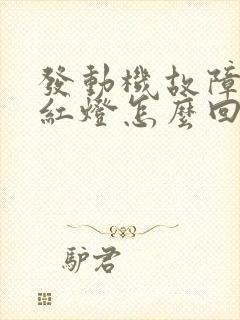 發動機故障
紅燈怎麼回
驴君